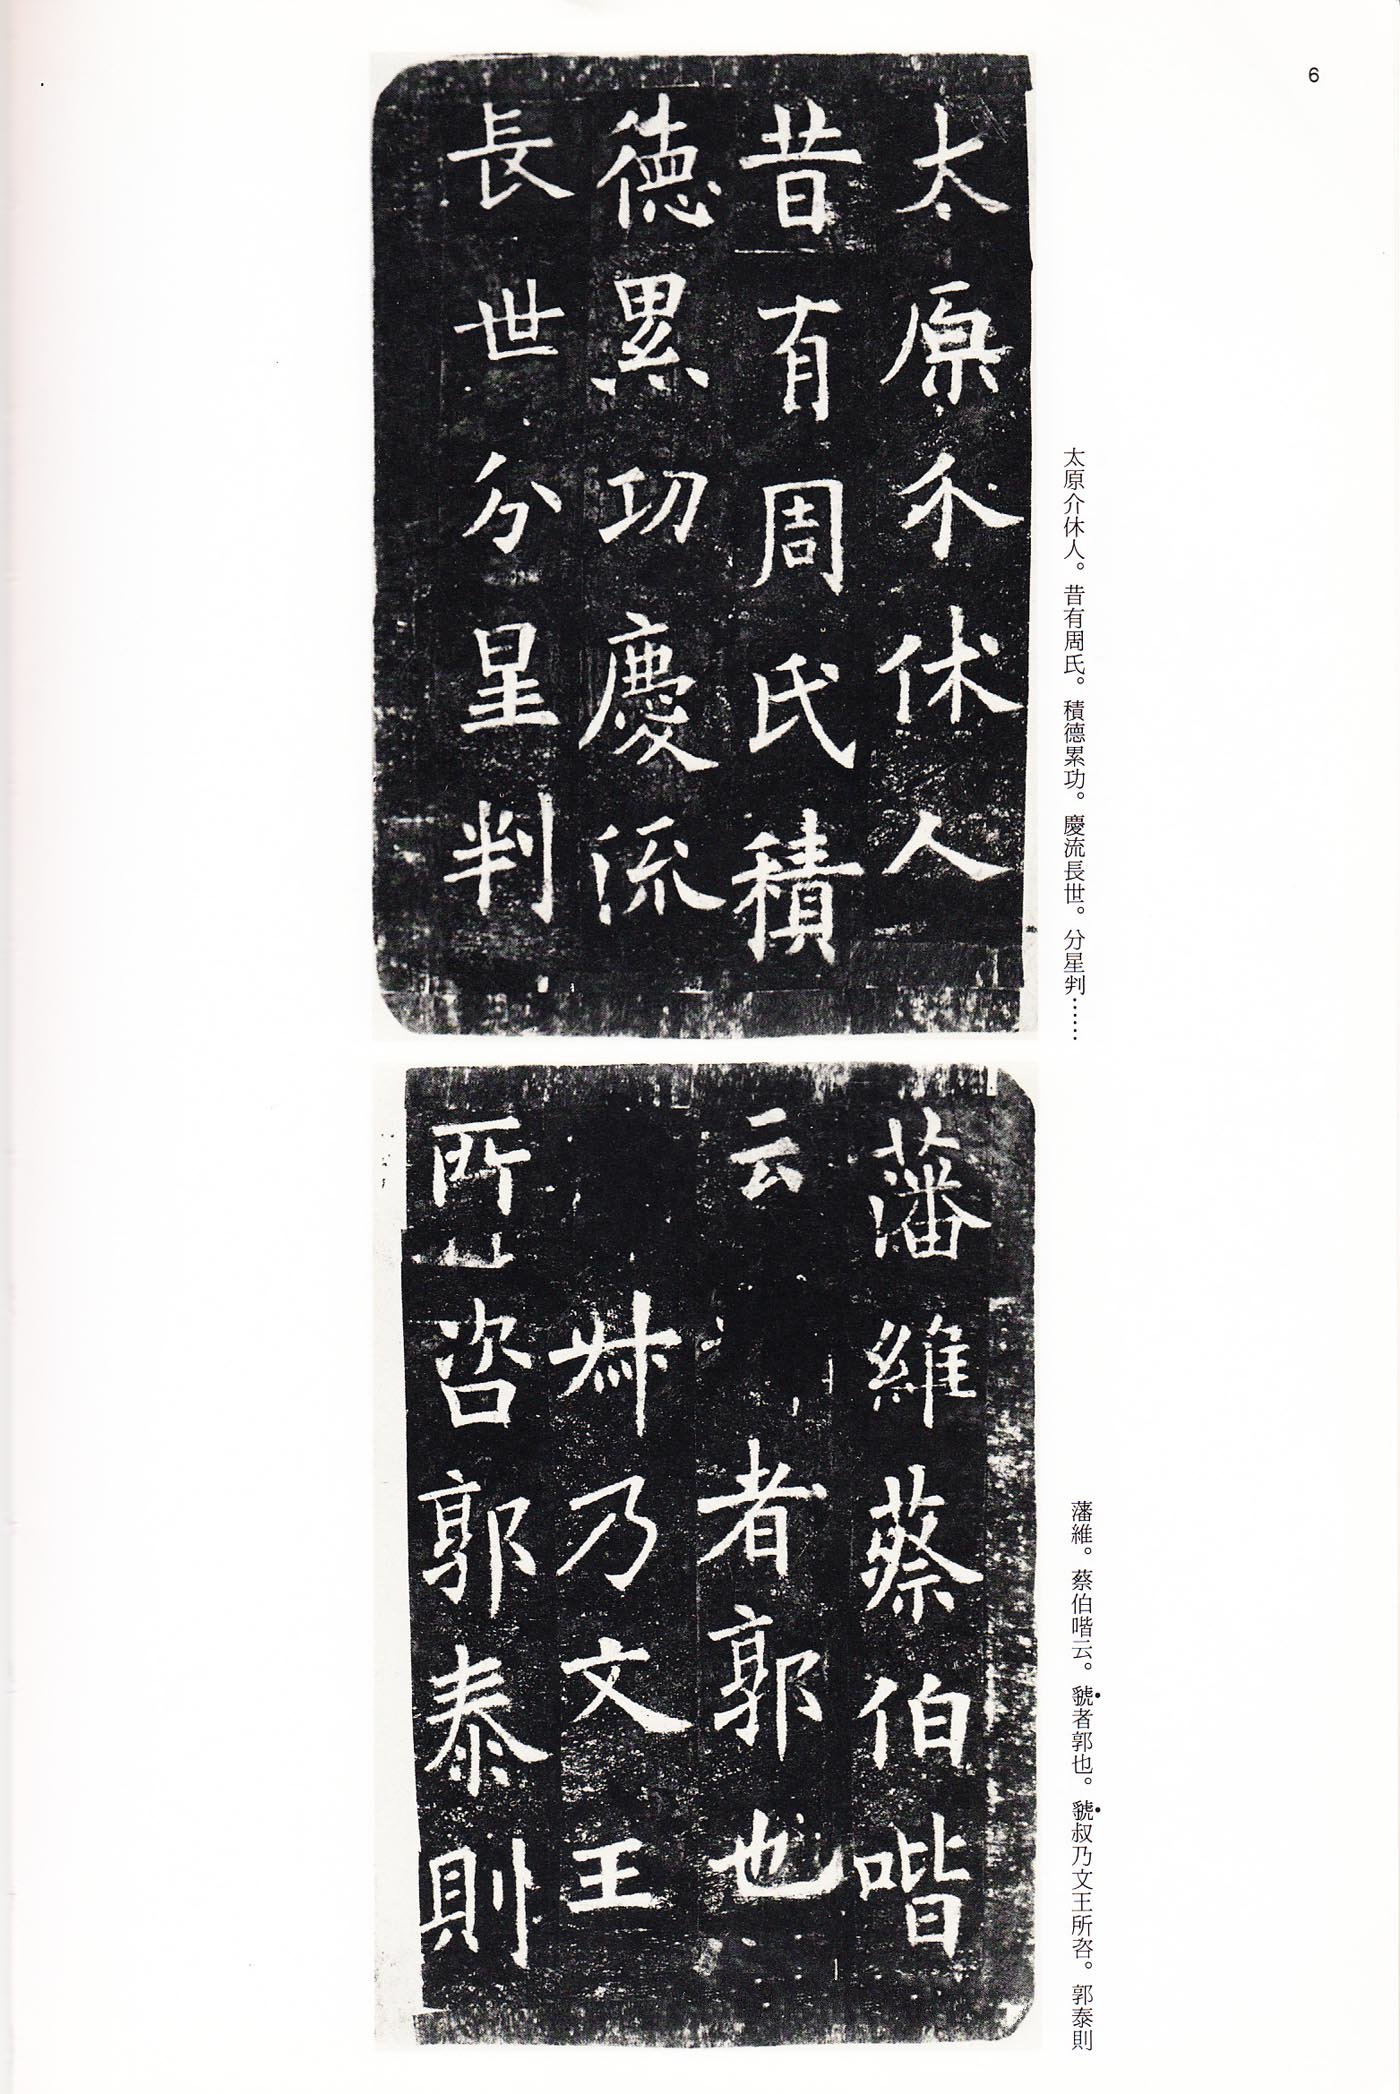 6
太原介休人。昔有周氏。積德累功。慶流長世。分星判……
太原介休人
昔有周氏積
德累功慶流
長世分星判
藩維。蔡伯喈云。虢者郭也。虢叔乃文王所咨。郭泰則
藩維蔡伯喈
云者郭也
叔乃文王
所咨郭泰則